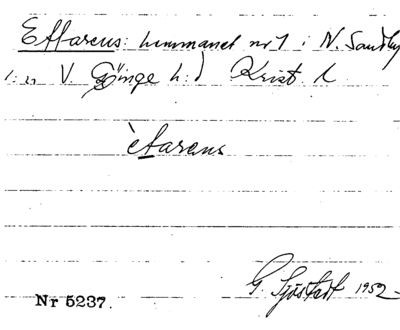 Ettarens: hemmanet nr 1 i N. Sandby
s:n V. Göinge h:d Krist. l.
ètarens
G. Sjöstedt 1952
Nr 5237.